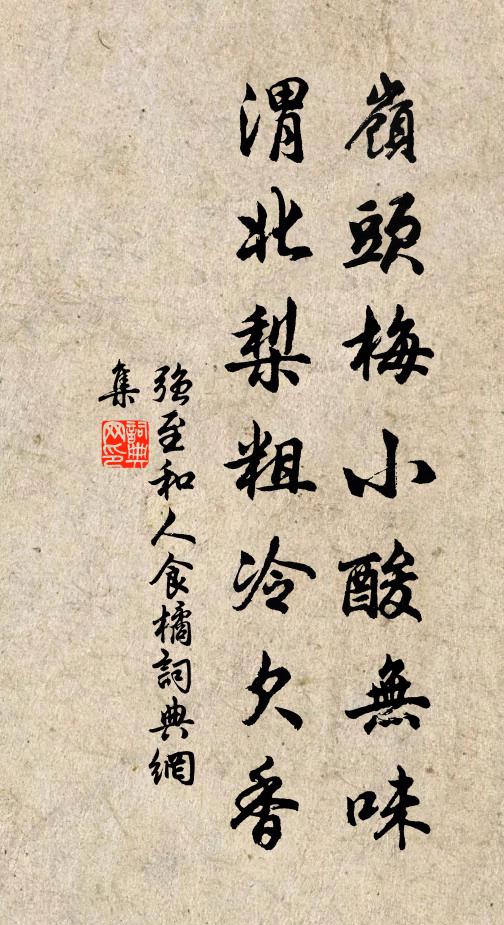 嶺頭梅小酸無味
渭北梨粗冷欠香
強至和人食橘詞典網
集
詞典
网印